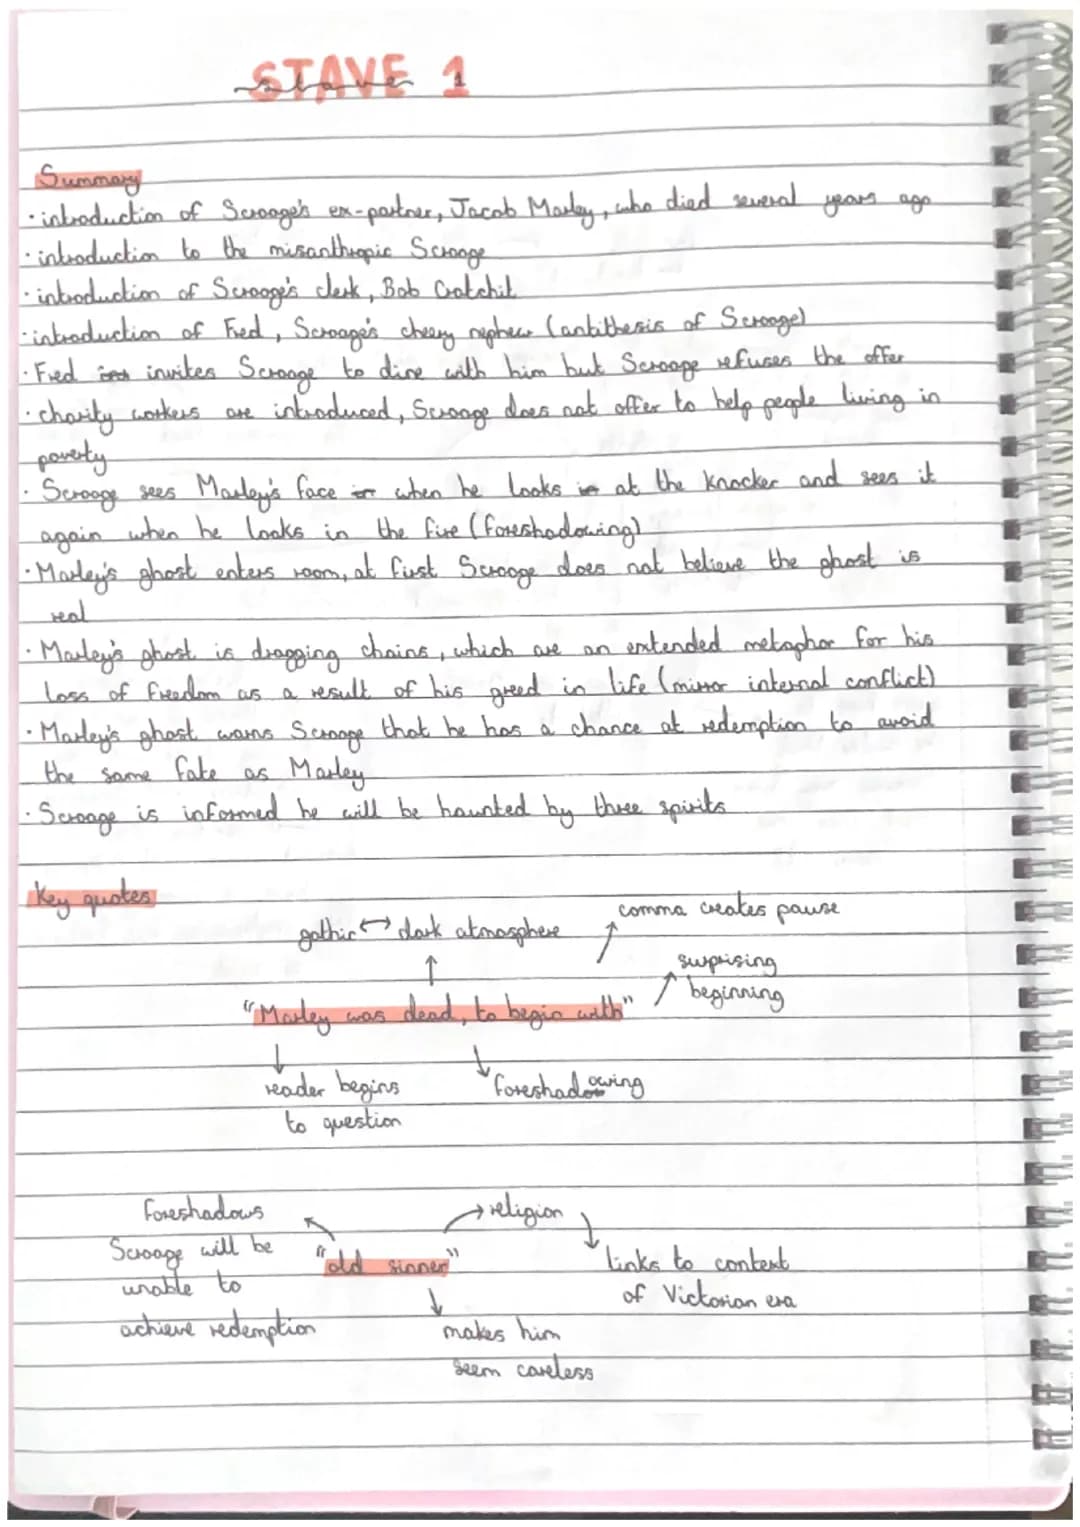 STAVE 1
stave
Summary
· introduction of Scrooge's ex-partner, Jacob Marley, who died several years ago
· introduction to the misanthropic Scrooge
· introduction of Scrooge's clerk, Bob Cratchit
· introduction of Fred, Scrooge's cheery nephew (antithesis of Scrooge)
· Fred invites Scrooge to dine with him but Scrooge refuses the offer
· charity workers are introduced, Scrooge does not offer to help people living in
poverty
· Scrooge sees Marley's face when he looks at the knocker and sees it
again when he looks in the fire (foreshadowing)
· Marley's ghost enters room, at first Scrooge does not believe the ghost is
real
· Marley's ghost is dragging chains, which are an extended metaphor for his
loss of freedom as a result of his greed in life (mirror internal conflict)
· Marley's ghost warns Scrooge that he has a chance at redemption to avoid
the same fate as Marley
· Scrooge is informed he will be haunted by three spirits
Key quotes
comma creates pause
gothic ↔ dark atmosphere
surprising
beginning
"Marley was dead, to begin with"
reader begins
to question
foreshadowing
foreshadows
Scrooge will be
unable to
achieve redemption
"old sinner"
religion
links to context
of Victorian era
makes him
seem careless